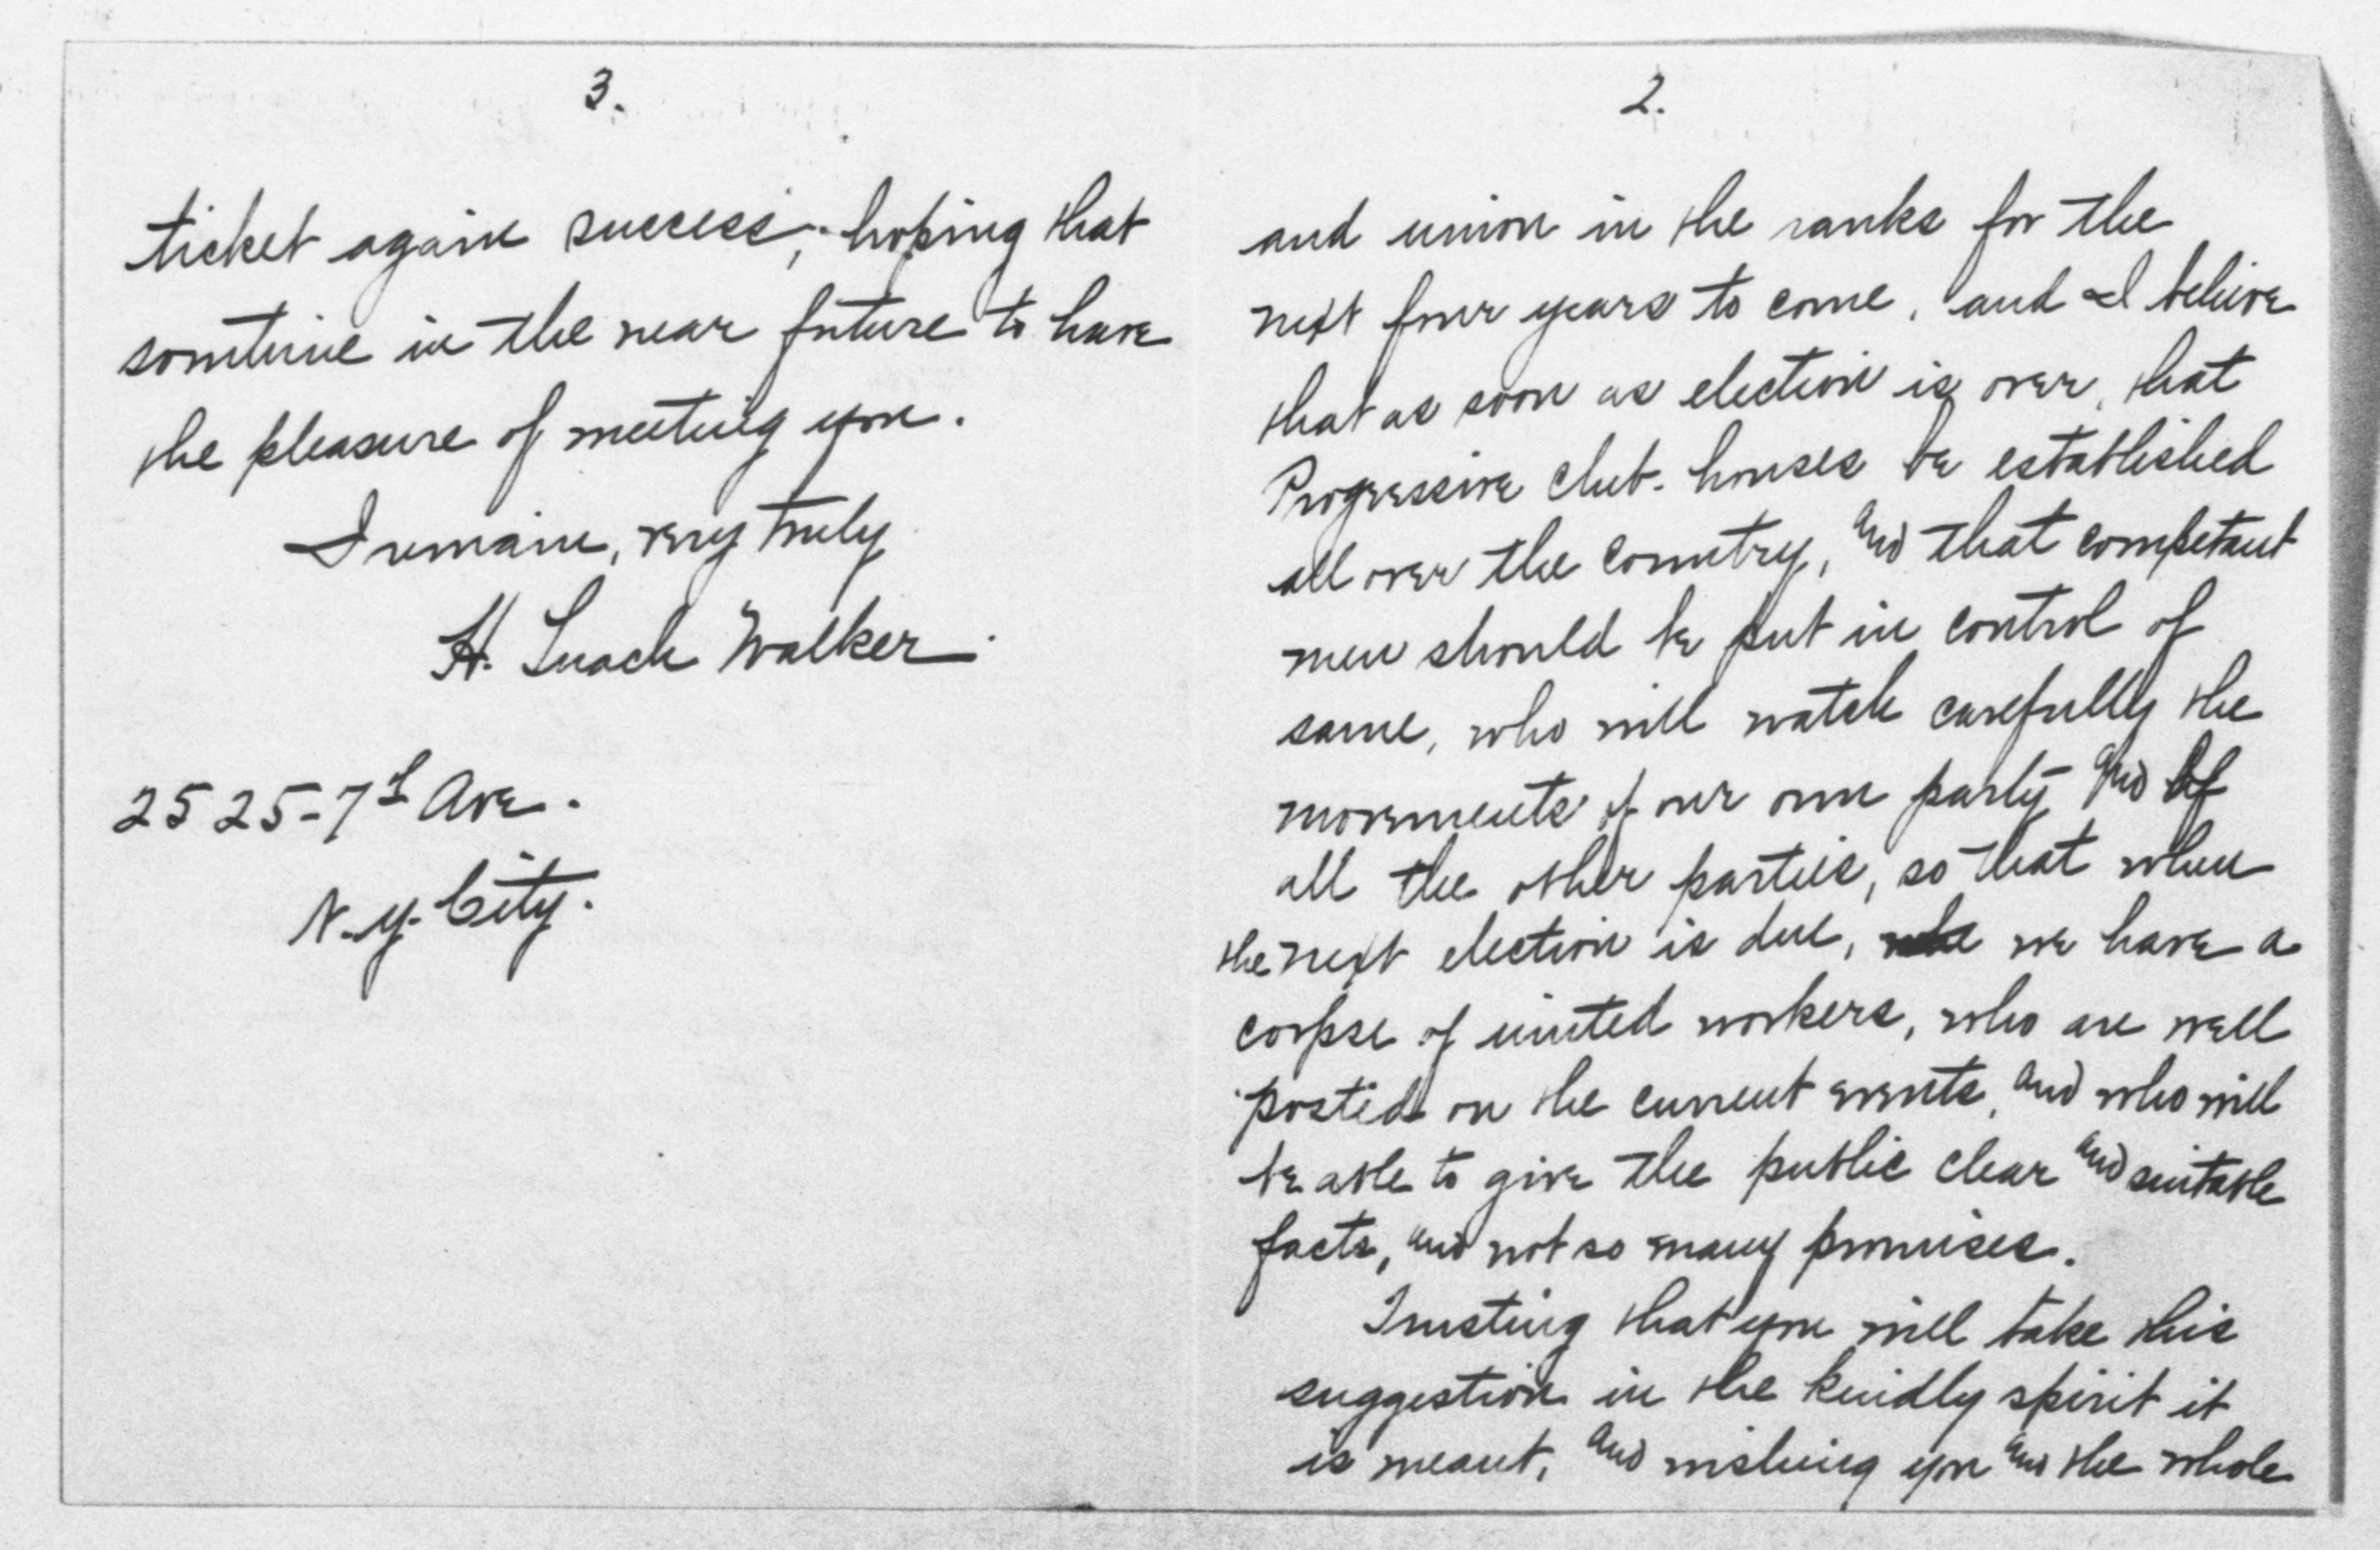 2.
and union in the ranks for the
next four years to come, and I believe
that as soon as election is over, that
Progressive club-houses be established
all over the country, and that competant
men should be put in control of
same, who will watch carefully the
movements of our own party and of
all the other parties, so that when
the next election is due, we have a
corpse of united workers, who are well
posted on the current events, and who will
be able to give the public clear and suitable
facts, and not so many promises.
Trusting that you will take this
suggestion in the kindly spirit it
is meant, and wishing you and the whole
3.
ticket again success, hoping that
sometime in the near future to have
the pleasure of meeting you.
I remain, very truly
H. Walker.
2525-7th Ave.
N.Y. City.